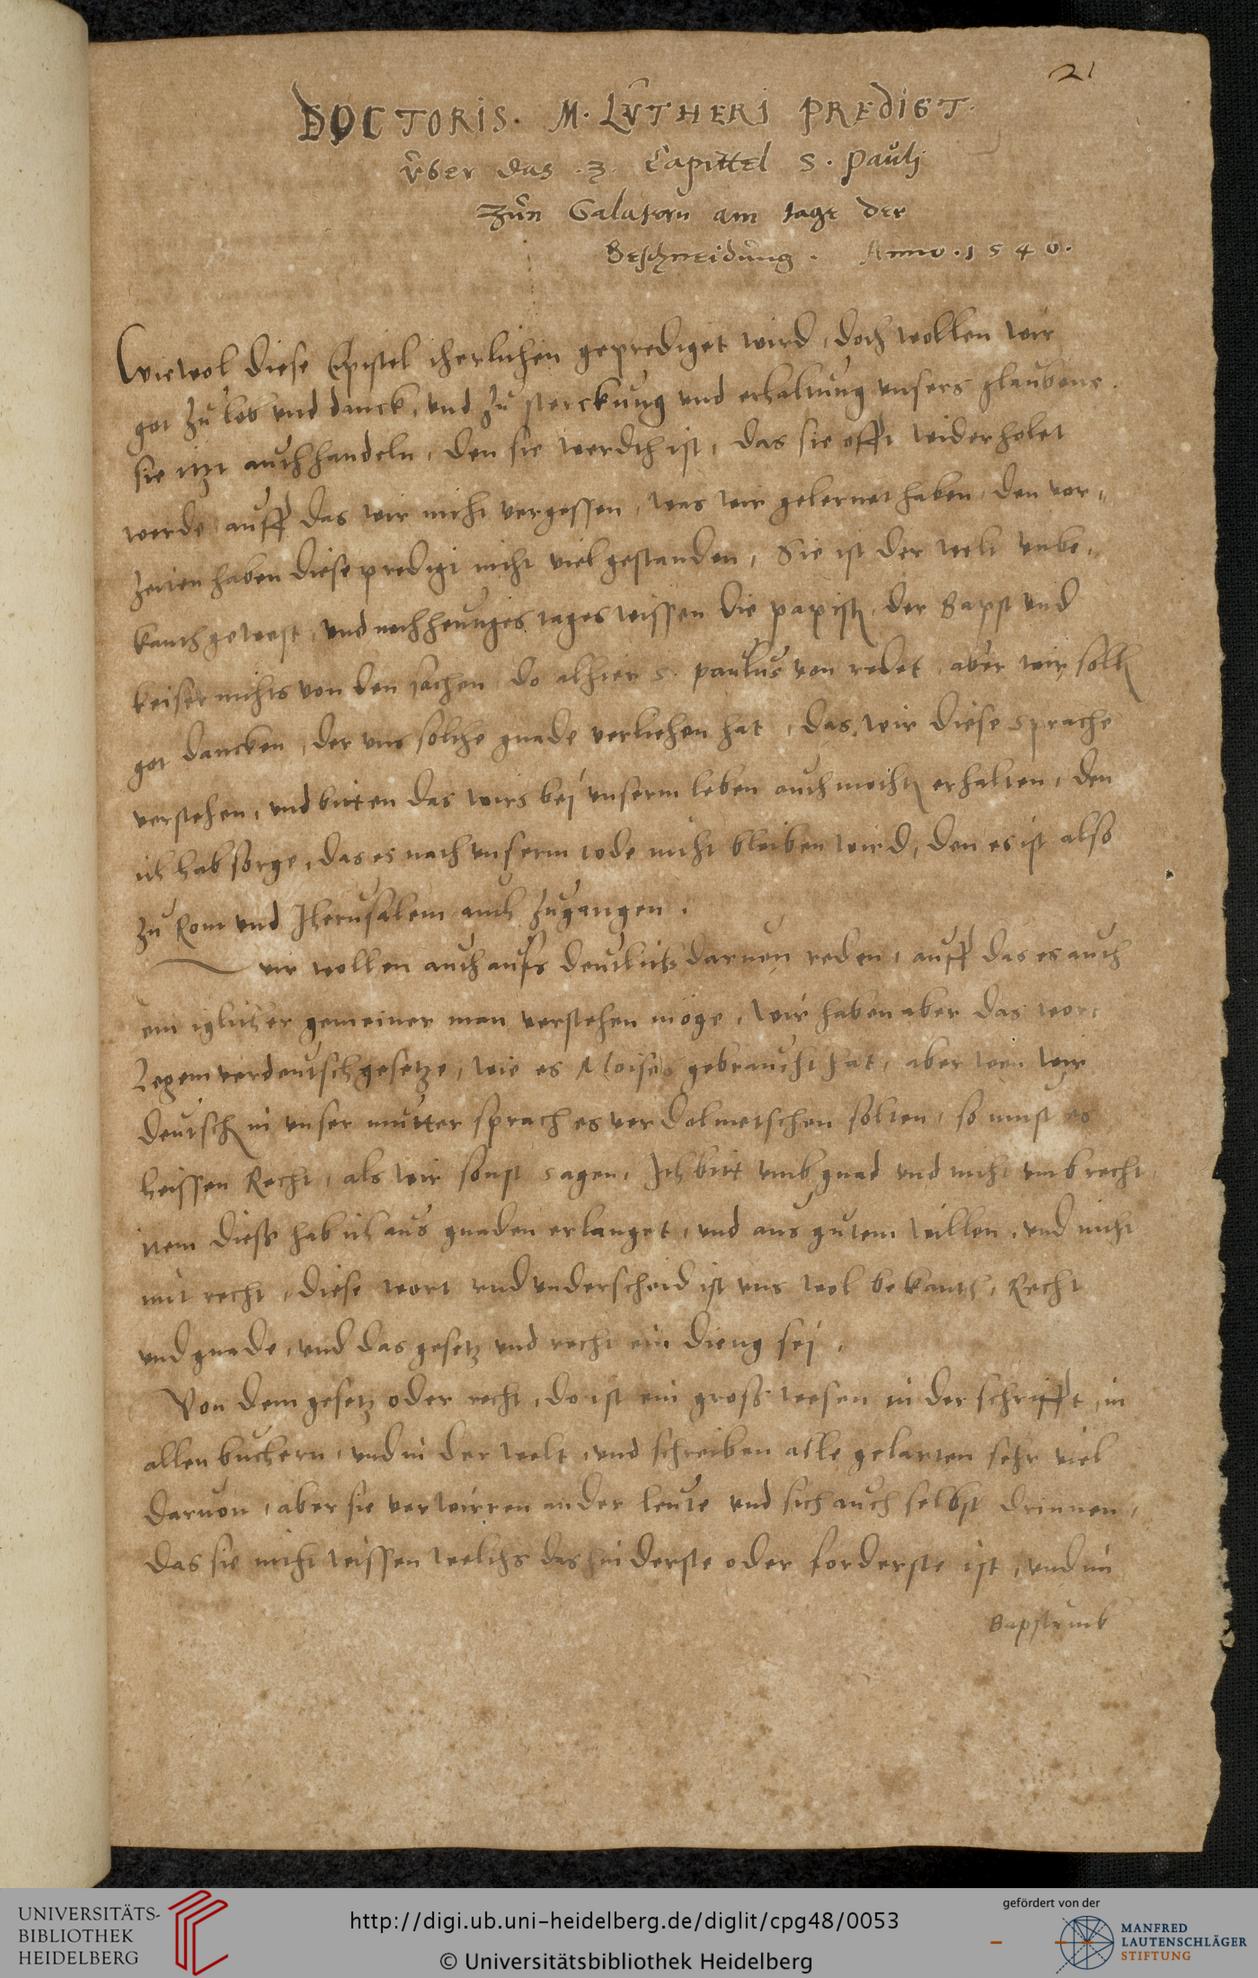 21
DOCTORIS. M. LVTHERI PREDIGT.
Vber das .3. Capittel S. Paulj
Zun Galatern am tage der
Beschneidung. Anno. 1540.
Wiewol diese Epistel iherlichen geprediget wird, doch wollen wir
got zu lob und danck, und zu sterckung und erhaltung unsers glaubens.
sie itzt auch handeln, den sie werdt ist, das sie offt widerholet
werde, auff das wir nicht vergessen, was wir gelernet haben, den vor,
zeiten haben diese predigt nicht viel gestanden, Sie ist der welt unbe,
kanth gewest, und noch heutiges tages wissen die papisten, der Bapst und
keiser nichts von den sachen, do alhier S. paulus von redet, aber wir sollen
got dancken, der uns solche gnade verliehen hat, das wir diese sprache
verstehen, und bitten das wirs bej unserm leben auch mochten erhalten, den
ich hab sorge, das es nach unserm tode nicht bleiben wird, den es ist also
zu Rom und Jherusalem auch zugangen.
wir wollen auch aufs deutlichst daruon reden, auff das es auch
ein iglicher gemeiner man verstehen möge, Wir haben aber das wort
Legem verdeutsch gesetze, wie es Moises gebraucht hat, aber wen wir
deutsch in unser mutter sprach es verdolmetschen solten, so must es
heissen Recht, als wir sonst sagen, Ich bitt umb gnad und nicht umb recht
item dieß hab ich aus gnaden erlanget, und aus gutem willen, und nicht
mit recht, diese wort und underscheid ist uns wol bekanth, Recht
und gnade, und das gesetz und recht ein dieng sej.
Von dem gesetz oder recht, do ist ein groß wesen in der schrifft, in
allen buchern, und in der welt, und schreiben alle gelarten sehr viel
daruon, aber sie verwirren ander leute und sich auch selbst drinnen,
das sie nicht wissen welchs das hinderste oder forderste ist, und im
Bapstumb
UNIVERSITÄTS-
BIBLIOTHEK
HEIDELBERG
http://digi.ub.uni-heidelberg.de/diglit/cpg48/0053
© Universitätsbibliothek Heidelberg
gefördert von der
MANFRED
LAUTENSCHLÄGER
STIFTUNG